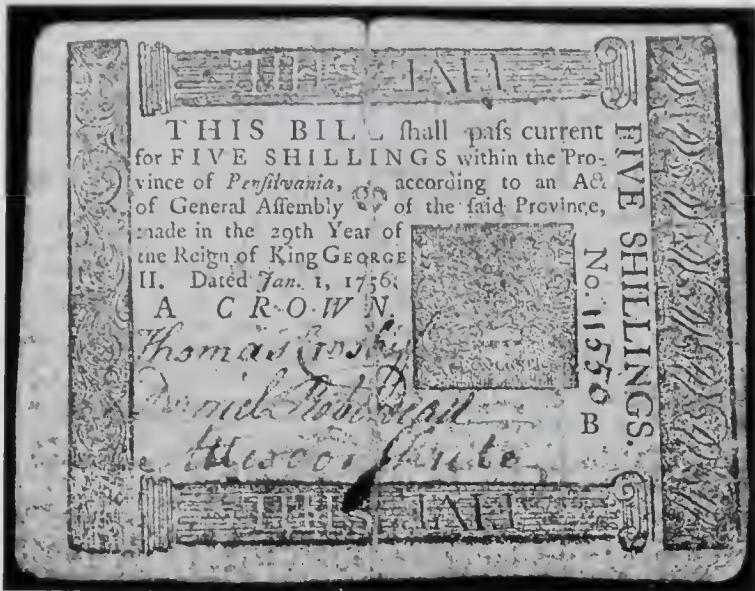 THIS BILL ſhall paſs current
for FIVE SHILLINGS within the Pro-
vince of Penſilvania, according to an Act
of General Aſſembly of the ſaid Province,
made in the 29th Year of
the Reign of King GEORGE
II. Dated Jan. 1, 1756.
A CROWN.
Thomas Crosby
Daniel Roberdeau
White
FIVE SHILLINGS.
No. 11550
B